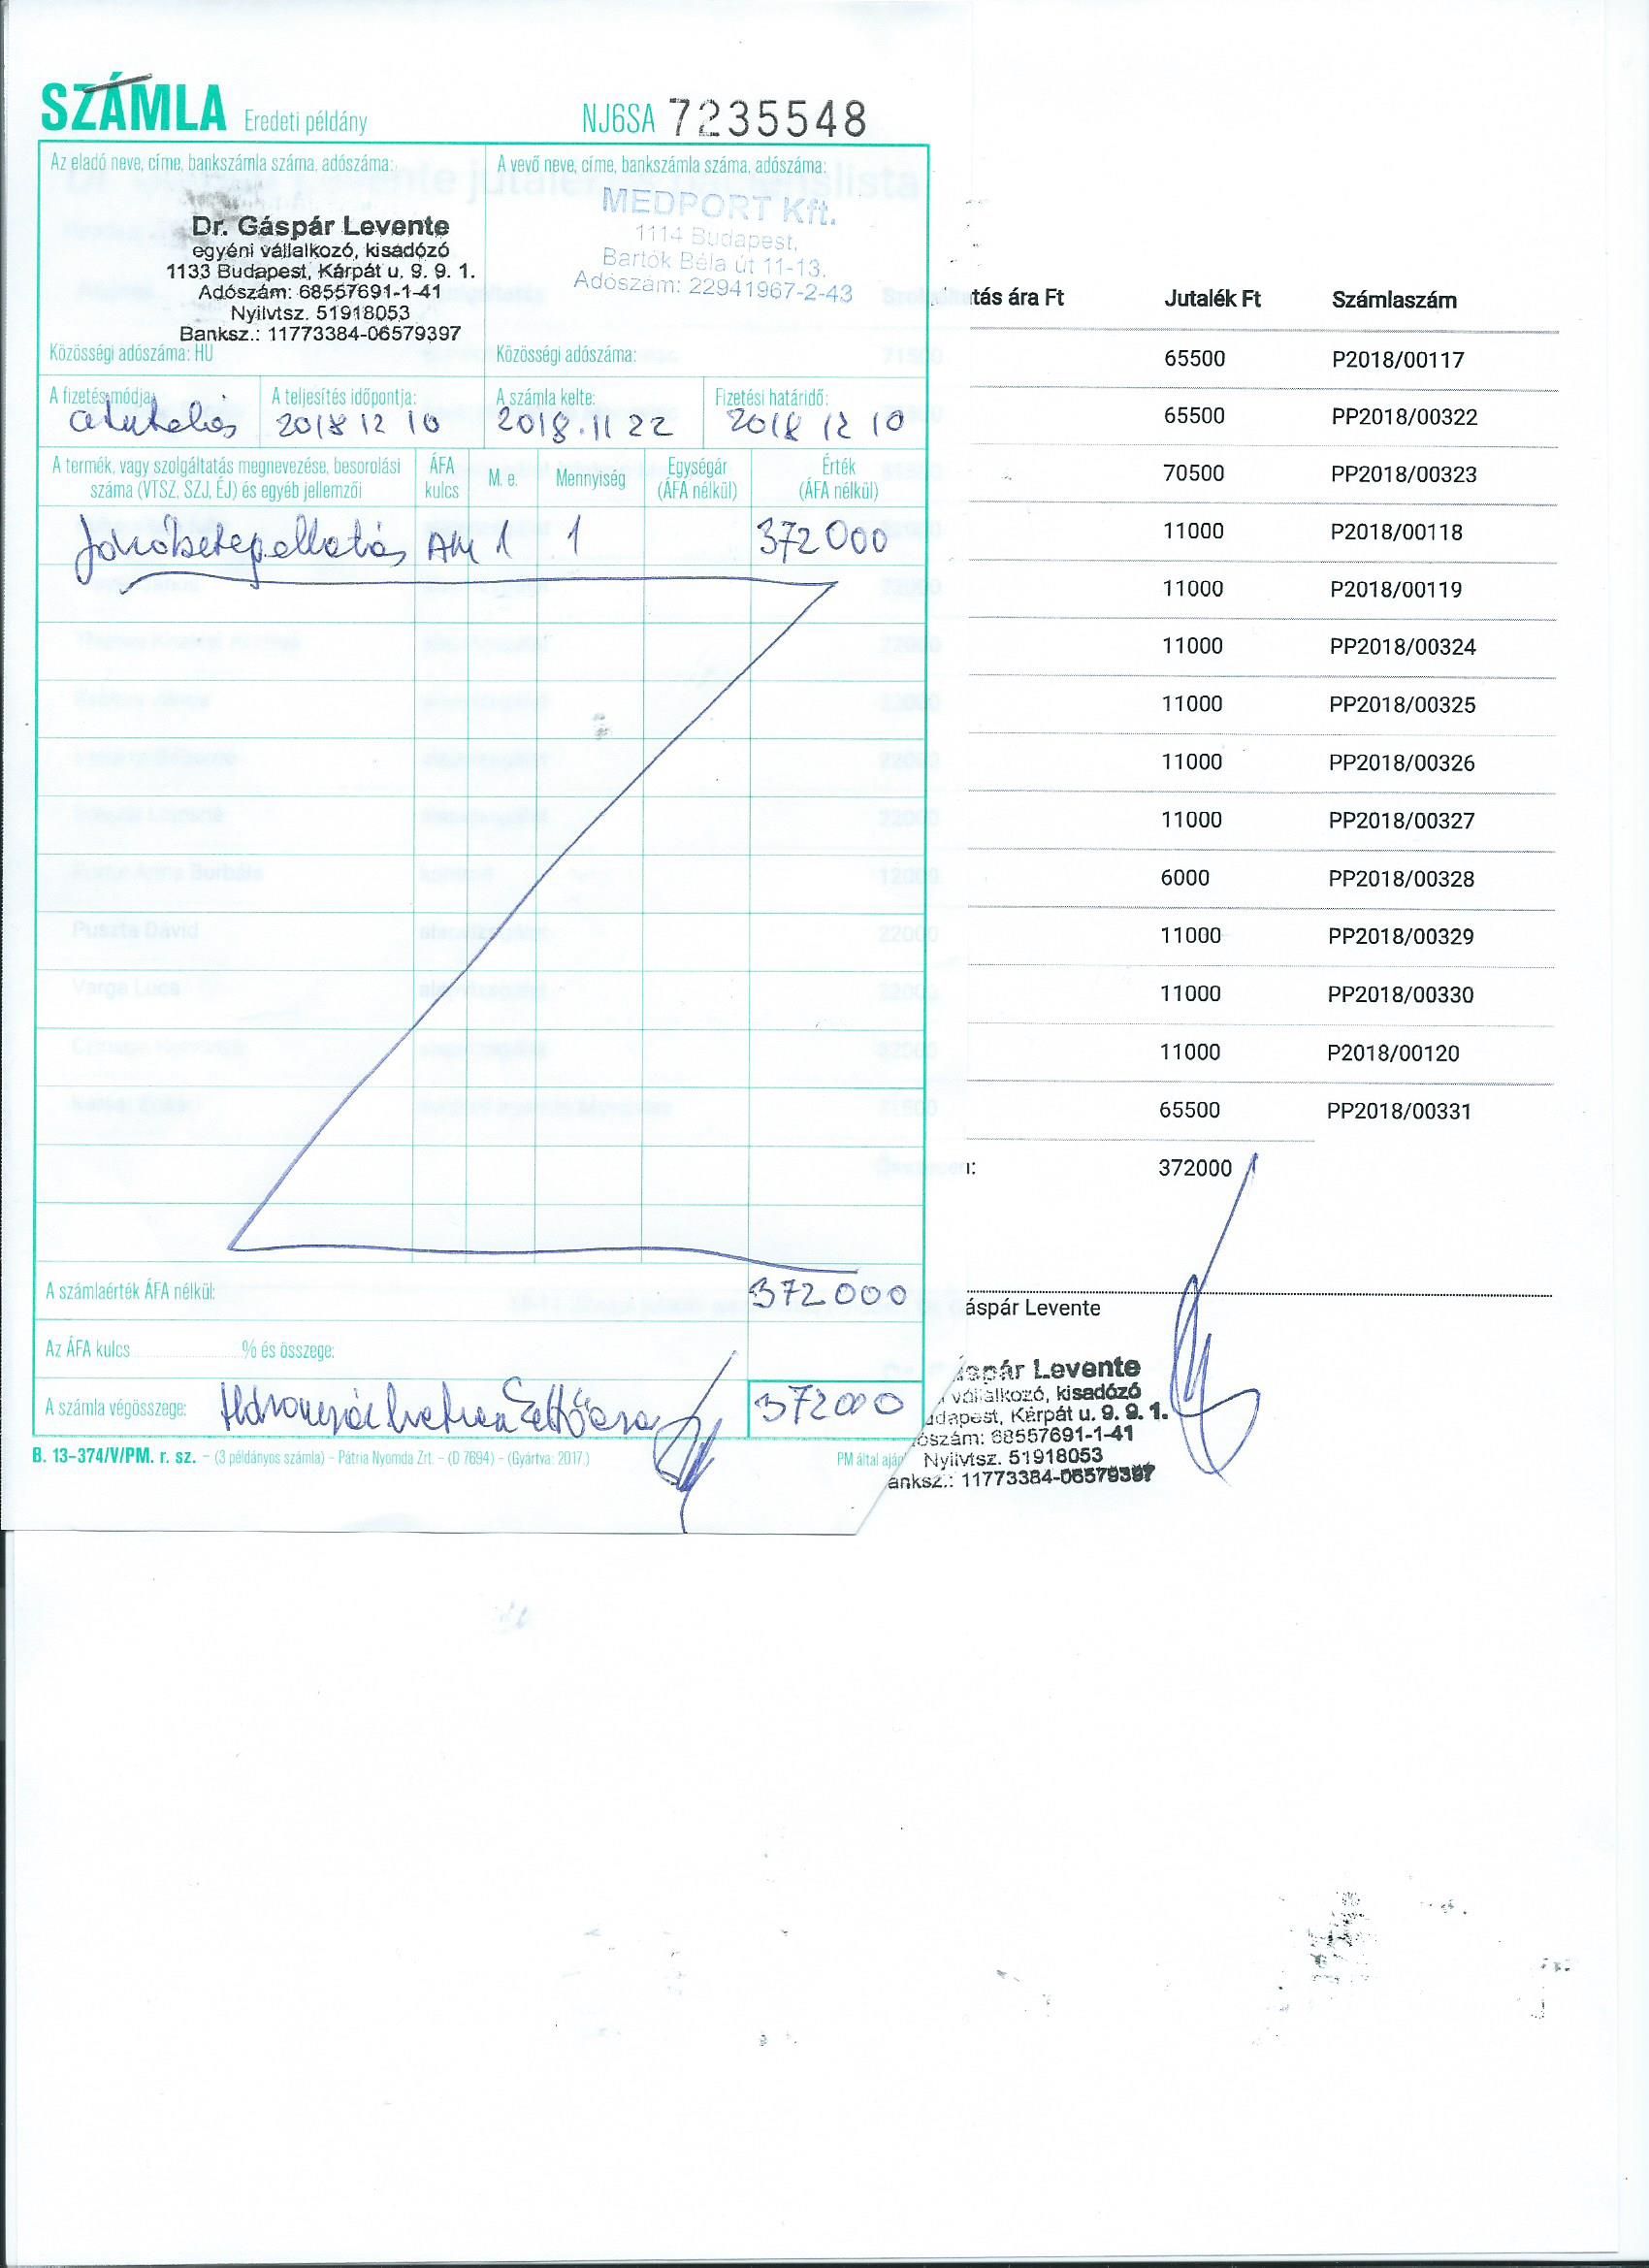 SZÁMLA Eredeti példány NJ6SA 7235548
Az eladó neve, címe, bankszámla száma, adószáma:
Dr. Gáspár Levente
egyéni vállalkozó, kisadózó
1133 Budapest, Kárpát u. 9. 9. 1.
Adószám: 68557691-1-41
Nyilvtsz. 51918053
Banksz.: 11773384-06579397
Közösségi adószáma: HU
A vevő neve, címe, bankszámla száma, adószáma:
MEDPORT Kft.
1114 Budapest,
Bartók Béla út 11-13.
Adószám: 22941967-2-43
Közösségi adószáma:
A fizetés módja:
átutalás
A teljesítés időpontja:
2018 12 10
A számla kelte:
2018.11 22
Fizetési határidő:
2018 12 10
A termék, vagy szolgáltatás megnevezése, besorolási
száma (VTSZ, SZJ, ÉJ) és egyéb jellemzői
ÁFA
kulcs
M. e.
Mennyiség
Egységár
(ÁFA nélkül)
Érték
(ÁFA nélkül)
Járóbetegellátás AM 1 1 372000
A számlaérték ÁFA nélkül: 372000
Az ÁFA kulcs % és összege:
A számla végösszege: 372000
B. 13-374/V/PM. r. sz. – (3 példányos számla) - Pátria Nyomda Zrt. – (D 7694) – (Gyártva: 2017.)
PM által aján
tás ára Ft Jutalék Ft Számlaszám
65500 P2018/00117
65500 PP2018/00322
70500 PP2018/00323
11000 P2018/00118
11000 P2018/00119
11000 PP2018/00324
11000 PP2018/00325
11000 PP2018/00326
11000 PP2018/00327
6000 PP2018/00328
11000 PP2018/00329
11000 PP2018/00330
11000 P2018/00120
65500 PP2018/00331
372000
áspár Levente
áspár Levente
vállalkozó, kisadózó
udapest, Kárpát u. 9. 9. 1.
ószám: 68557691-1-41
Nyilvtsz. 51918053
anksz.: 11773384-06579397